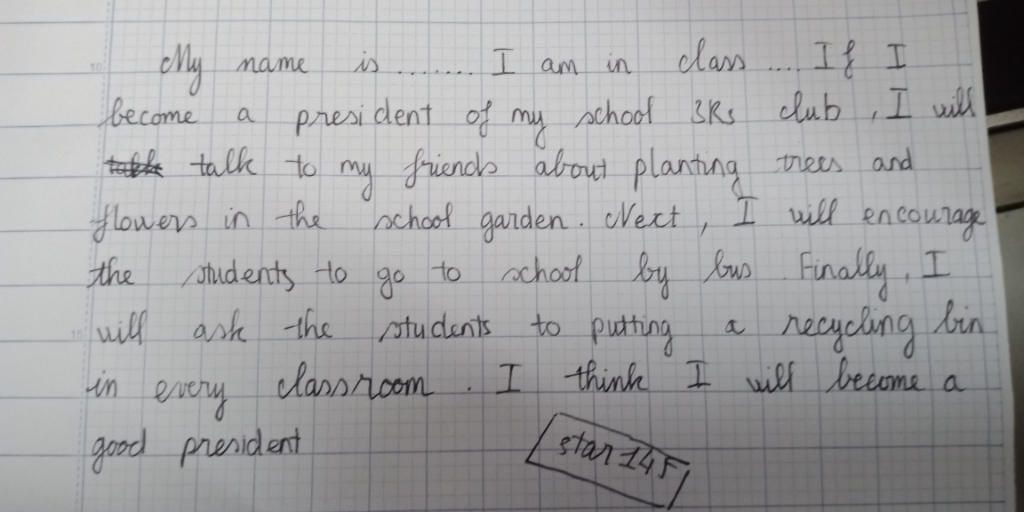 My name is ........ I am in class .... If I
become a president of my school 3Rs club, I will
talk to my friends about planting trees and
flowers in the school garden. Next, I will encourage
the students to go to school by bus. Finally, I
will ask the students to putting a recycling bin
in every classroom. I think I will become a
good president
star145